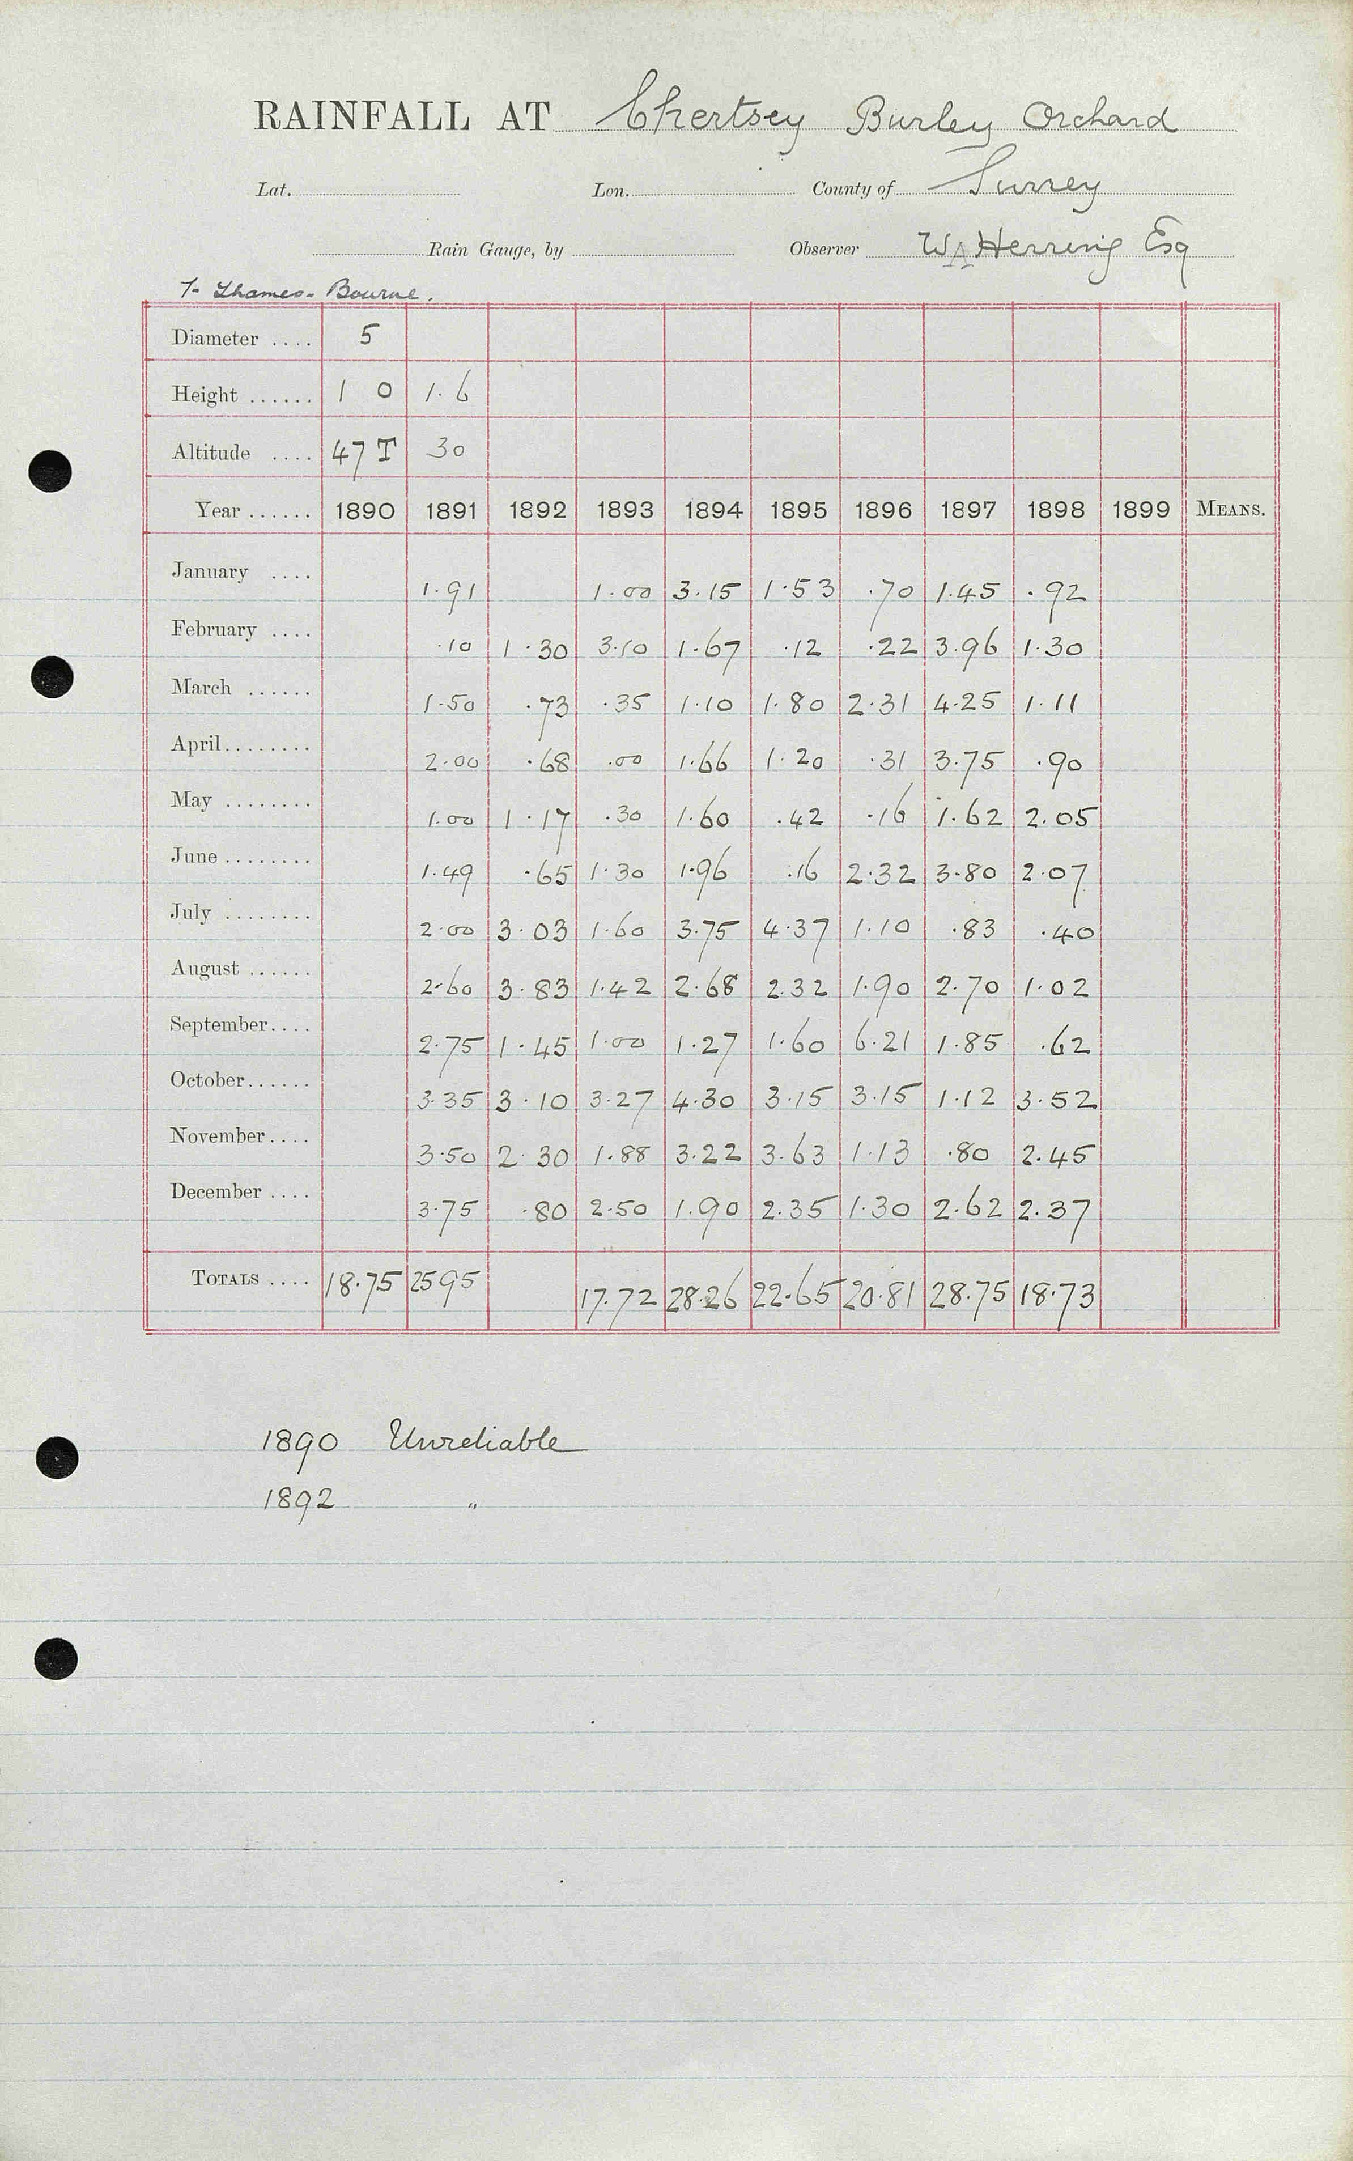 RAINFALL AT Chertsey Burley Orchard
Lat. Lon. County of Surrey
Rain Gauge, by Observer W A Herring Esq
T- Thames- Bourne.
Diameter .... 5
Height ...... 1 0 1.6
Altitude .... 47 T 30
Year ...... 1890 1891 1892 1893 1894 1895 1896 1897 1898 1899 MEANS.
January .... 1.91 1.00 3.15 1.53 .70 1.45 .92
February .... .10 1.30 3.10 1.67 .12 .22 3.96 1.30
March ...... 1.50 .73 .35 1.10 1.80 2.31 4.25 1.11
April........ 2.00 .68 .00 1.66 1.20 .31 3.75 .90
May ........ 1.00 1.17 .30 1.60 .42 .16 1.62 2.05
June ........ 1.49 .65 1.30 1.96 .16 2.32 3.80 2.07
July ........ 2.00 3.03 1.60 3.75 4.37 1.10 .83 .40
August ...... 2.60 3.83 1.42 2.68 2.32 1.90 2.70 1.02
September.... 2.75 1.45 1.00 1.27 1.60 6.21 1.85 .62
October...... 3.35 3.10 3.27 4.30 3.15 3.15 1.12 3.52
November.... 3.50 2.30 1.88 3.22 3.63 1.13 .80 2.45
December .... 3.75 .80 2.50 1.90 2.35 1.30 2.62 2.37
TOTALS .... 18.75 25 95 17.72 28.26 22.65 20.81 28.75 18.73
1890 Unreliable
1892 "